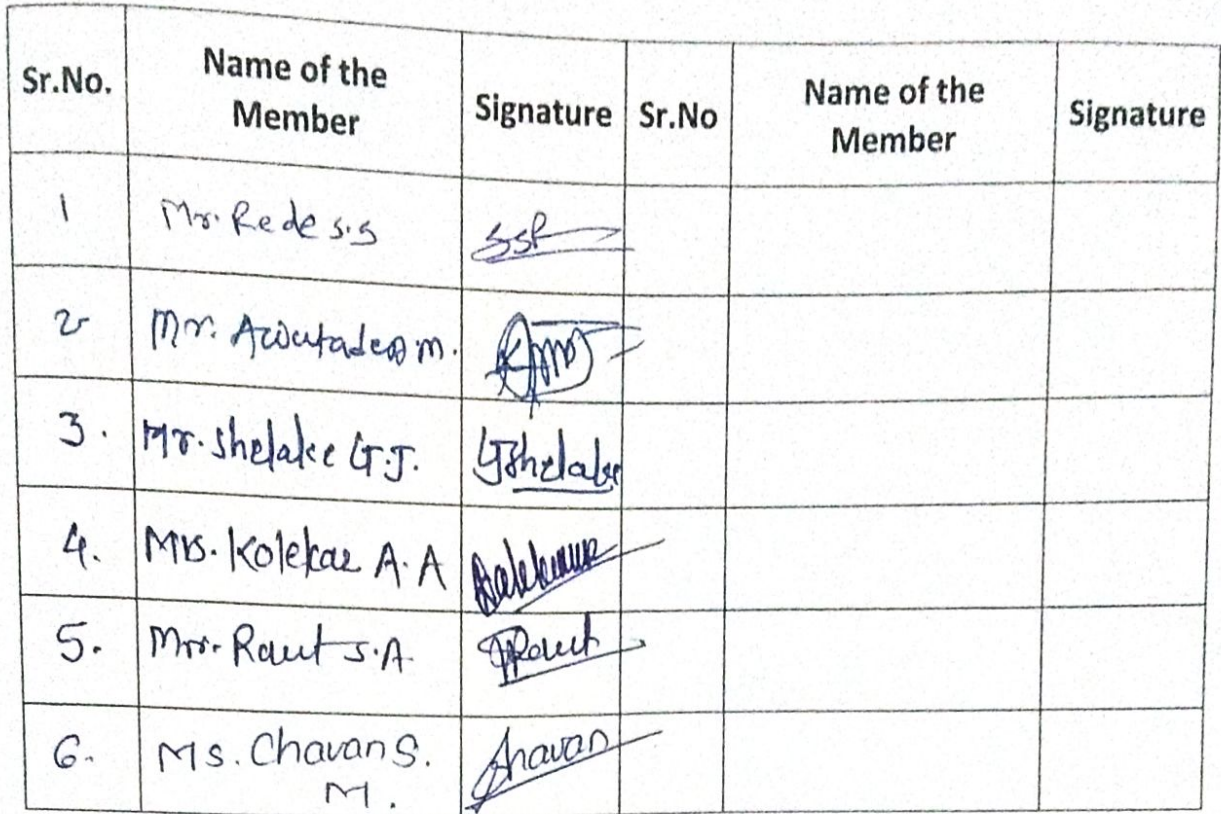 Sr.No. Name of the Member Signature Sr.No Name of the Member Signature
1 Mr. Rede S.S SSR
2 Mr. m.
3. Mr. Shelake G.J. GJShelake
4. Mrs. Kolekar A.A
5. Mrs. Raut S.A. Raut
6. Ms. Chavan S. Chavan
M.